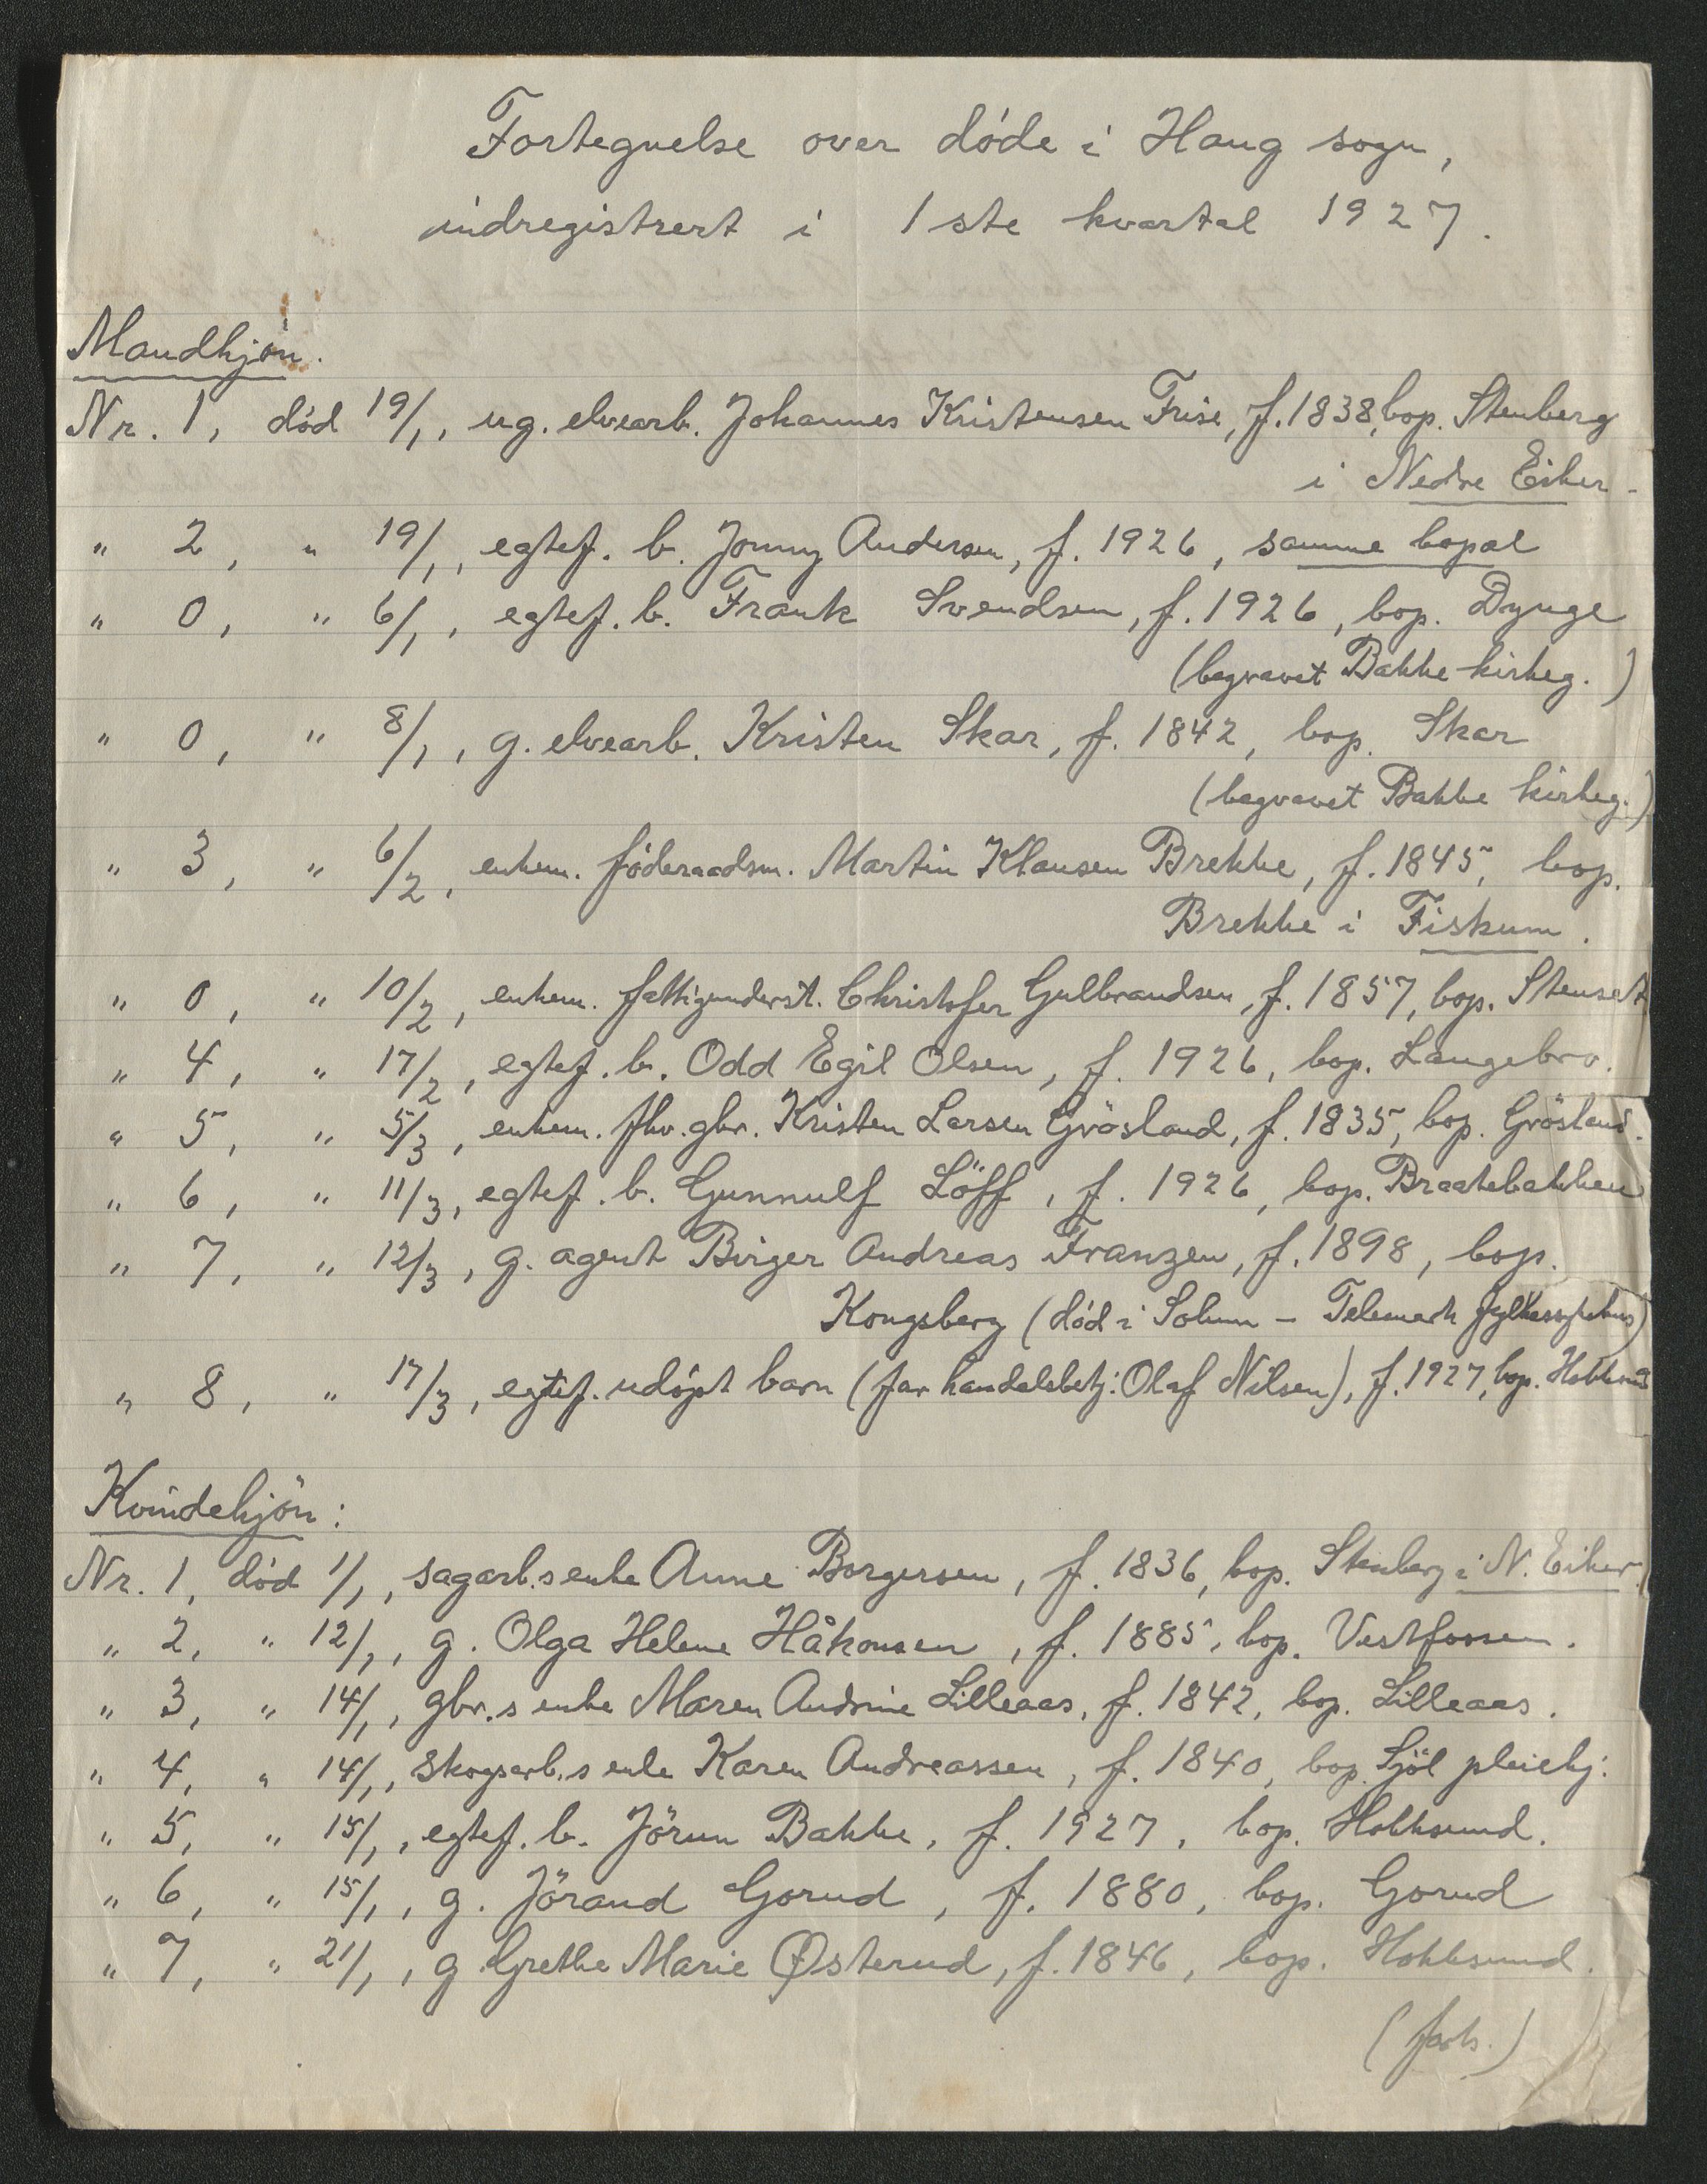 Fortegnelse over døde i Haug sogn,
indregistrert i 1ste kvartal 1927.
Mandkjön.
Nr. 1, død 19/1, ug. elvearb. Johannes Kristensen Frise, f. 1838, bop. Stenberg
i Nedre Eiker.
" 2, " 19/1, egtef. b. Jonny Andersen, f. 1926, samme bopæl
" 0, " 6/1, egtef. b. Frank Svendsen, f. 1926, bop. Dynge
(begravet Bakke kirkeg.)
" 0, " 8/1, g. elvearb. Kristen Skar, f. 1842, bop. Skar
(begravet Bakke kirkeg.)
" 3, " 6/2, enkem. føderaadsm. Martin Klausen Brekke, f. 1845, bop.
Brekke i Fiskum.
" 0, " 10/2, enkem. fattigunderst. Christofer Gulbrandsen, f. 1857, bop. Stenset
" 4, " 17/2, egtef. b. Odd Egil Olsen, f. 1926, bop. Langebro.
" 5, " 5/3, enkem. fhv. gbr. Kristen Larsen Grösland, f. 1835, bop. Grösland.
" 6, " 11/3, egtef. b. Gunnulf Löff, f. 1926, bop. Braatebakken
" 7, " 12/3, g. agent Birger Andreas Franzen, f. 1898, bop.
Kongsberg (død i Solum - Telemark fylkessykehus)
" 8, " 17/3, egtef. udøpt barn (far handelsbetj: Olaf Nilsen), f. 1927, bop. Hokksund
Kvindekjön:
Nr. 1, død 1/1, sagarb.s enke Anne Borgersen, f. 1836, bop. Stenberg i N. Eiker.
" 2, " 12/1, g. Olga Helene Håkonsen, f. 1885, bop. Vestfossen.
" 3, " 14/1, gbr.s enke Maren Andrine Lilleaas, f. 1842, bop. Lilleaas.
" 4, " 14/1, skogsarb.s enke Karen Andreassen, f. 1840, bop. Sjöl pleiehj:
" 5, " 15/1, egtef. b. Jörun Bakke, f. 1927, bop. Hokksund.
" 6, " 15/1, g. Jörand Gorud, f. 1880, bop. Gorud
" 7, " 21/1, g. Grethe Marie Østerud, f. 1846, bop. Hokksund.
(forts.)